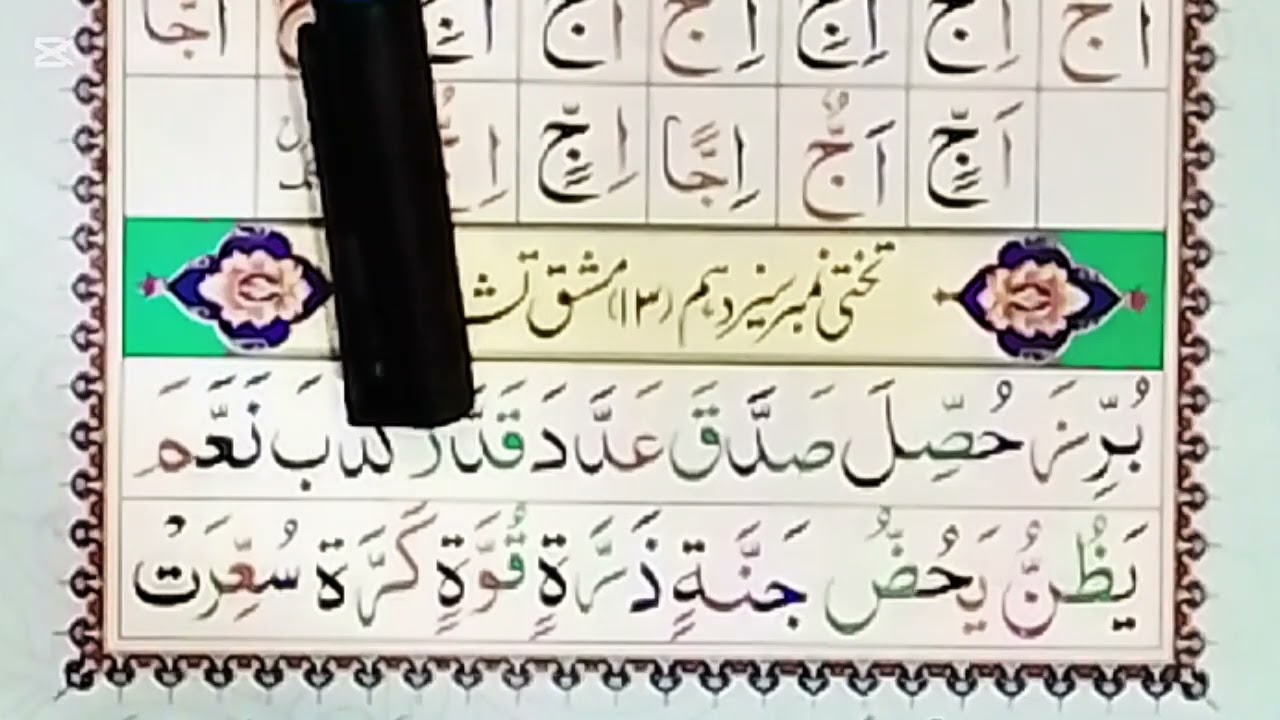 اَجَّ اِجِّ اِجَّ اِجِّ اِجَّ اَجَّ اَجًّا
اَجٍّ اَجٌّ اِجًّا اِجٍّ
تختی نمبر سیزدہم (۱۳) مشق
بُرِّزَ حُصِّلَ صَدَّقَ عَدَّدَ قَدَّرَ كَذَّبَ نَعَّمَ
يَظُنُّ يَحُضُّ جَنَّةٍ ذَرَّةٍ قُوَّةٍ كَرَّةً سُعِّرَتْ